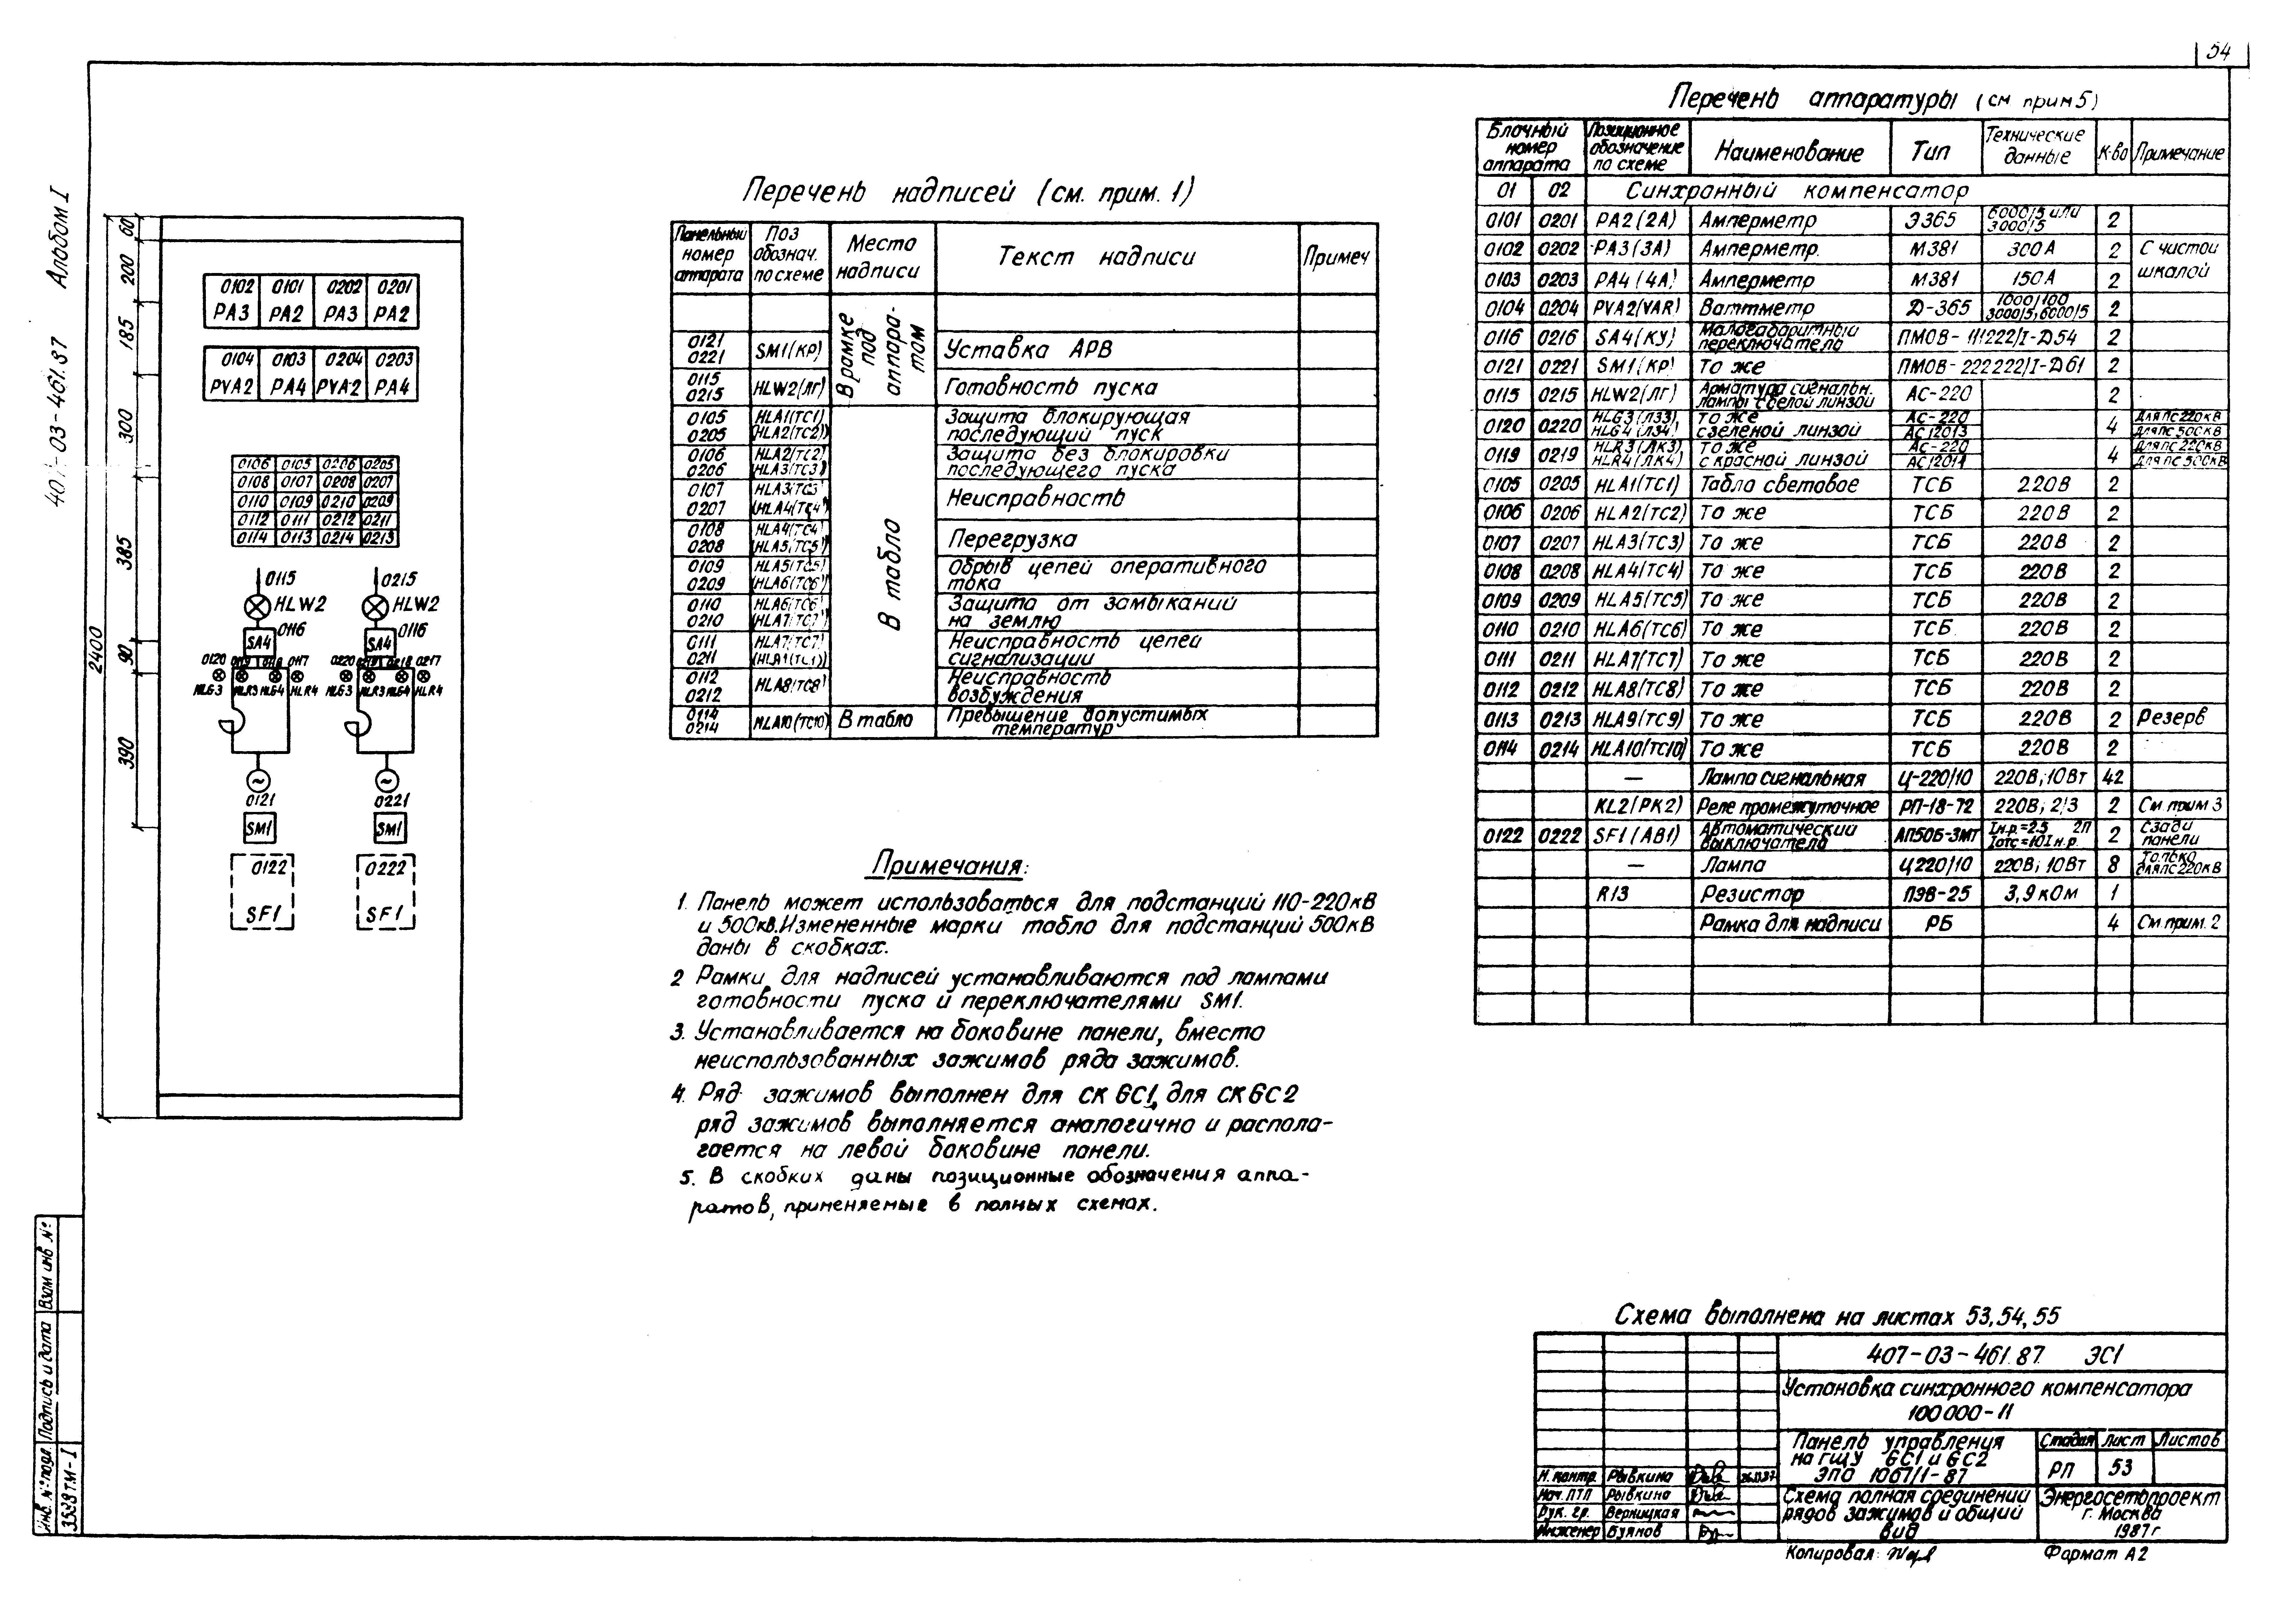 54
407-03-461.87 Альбом I
60
200
185
300
385
90
390
2400
0102 0101 0202 0201
РА3 РА2 РА3 РА2
0104 0103 0204 0203
PVA2 РА4 PVA2 РА4
0106 0105 0206 0205
0108 0107 0208 0207
0110 0109 0210 0209
0112 0111 0212 0211
0114 0113 0214 0213
0115 0215
HLW2 HLW2
SA4 0116 SA4 0116
0120 0119 0118 0117 0220 0219 0218 0217
HLG3 HLR3 HLG4 HLR4 HLG3 HLR3 HLG4 HLR4
0121 0221
SM1 SM1
0122 0222
SF1 SF1
Перечень надписей (см. прим. 1)
Панельный номер аппарата | Поз обознач. по схеме | Место надписи | Текст надписи | Примеч
В рамке под аппаратом
0121 0221 SM1(КР) Уставка АРВ
0115 0215 HLW2(ЛГ) Готовность пуска
В табло
0105 0205 HLA1(ТС1) (HLA2(ТС2)) Защита блокирующая последующий пуск
0106 0206 HLA2(ТС2) (HLA3(ТС3)) Защита без блокировки последующего пуска
0107 0207 HLA3(ТС3) (HLA4(ТС4)) Неисправность
0108 0208 HLA4(ТС4) (HLA5(ТС5)) Перегрузка
0109 0209 HLA5(ТС5) (HLA6(ТС6)) Обрыв цепей оперативного тока
0110 0210 HLA6(ТС6) (HLA7(ТС7)) Защита от замыканий на землю
0111 0211 HLA7(ТС7) (HLA1(ТС1)) Неисправность цепей сигнализации
0112 0212 HLA8(ТС8) Неисправность возбуждения
0114 0214 HLA10(ТС10) В табло Превышение допустимых температур
Примечания:
1. Панель может использоваться для подстанций 110-220кВ
и 500кв. Измененные марки табло для подстанций 500кВ
даны в скобках.
2 Рамки для надписей устанавливаются под лампами
готовности пуска и переключателями SM1.
3. Устанавливается на боковине панели, вместо
неиспользованных зажимов ряда зажимов.
4. Ряд зажимов выполнен для СК GC1, для СК GC2
ряд зажимов выполняется аналогично и распола-
гается на левой боковине панели.
5. В скобких даны позиционные обозначения аппа-
ратов, применяемые в полных схемах.
Перечень аппаратуры (см прим 5)
Блочный номер аппарата | Позиционное обозначение по схеме | Наименование | Тип | Технические данные | К-во | Примечание
01 02 Синхронный компенсатор
0101 0201 РА2(2А) Амперметр Э365 6000/5 или 3000/5 2
0102 0202 РА3(3А) Амперметр. М381 300А 2 С чистой
0103 0203 РА4(4А) Амперметр М381 150А 2 шкалой
0104 0204 PVA2(VAR) Ваттметр Д-365 1000/100 3000/5, 6000/5 2
0116 0216 SA4(КУ) Малогабаритный переключатель ПМОВ-111222/I-Д54 2
0121 0221 SM1(КР) То же ПМОВ-222222/I-Д61 2
0115 0215 HLW2(ЛГ) Арматура сигнальн. лампы с белой линзой АС-220 2
0120 0220 HLG3(ЛЗ3) HLG4(ЛЗ4) То же с зеленой линзой АС-220 АС12013 4 для ПС 220кВ для ПС 500кВ
0119 0219 HLR3(ЛК3) HLR4(ЛК4) То же с красной линзой АС-220 АС12011 4 для ПС 220кВ для ПС 500кВ
0105 0205 HLA1(ТС1) Табло световое ТСБ 220В 2
0106 0206 HLA2(ТС2) То же ТСБ 220В 2
0107 0207 HLA3(ТС3) То же ТСБ 220В 2
0108 0208 HLA4(ТС4) То же ТСБ 220В 2
0109 0209 HLA5(ТС5) То же ТСБ 220В 2
0110 0210 HLA6(ТС6) То же ТСБ 220В 2
0111 0211 HLA7(ТС7) То же ТСБ 220В 2
0112 0212 HLA8(ТС8) То же ТСБ 220В 2
0113 0213 HLA9(ТС9) То же ТСБ 220В 2 Резерв
0114 0214 HLA10(ТС10) То же ТСБ 220В 2
— Лампа сигнальная Ц-220/10 220В; 10Вт 42
KL2(РК2) Реле промежуточное РП-18-72 220В; 2/3 2 См прим 3
0122 0222 SF1(АВ1) Автоматический выключатель АП50Б-3МТ Iн.р.=2.5 2П Iотс=10Iн.р. 2 Сзади панели
— Лампа Ц220/10 220В; 10Вт 8 только для ПС 220кВ
R13 Резистор ПЭВ-25 3,9 кОм 1
Рамка для надписи РБ 4 См прим. 2
Схема выполнена на листах 53,54,55
407-03-461.87. ЭС1
Установка синхронного компенсатора
100000-11
Панель управления
на ГЩУ GC1 и GC2
ЭПО 1067/1-87
Стадия Лист Листов
РП 53
Схема полная соединений
рядов зажимов и общий
вид
Энергосетьпроект
г. Москва
1987г
Н. контр. Рывкина
Нач. ПТП Рывкина
Рук. гр. Верницкая
Инженер Буянов
Копировал:
Формат А2
Инв. № подл. Подпись и дата Взам инв №
3598тм-I